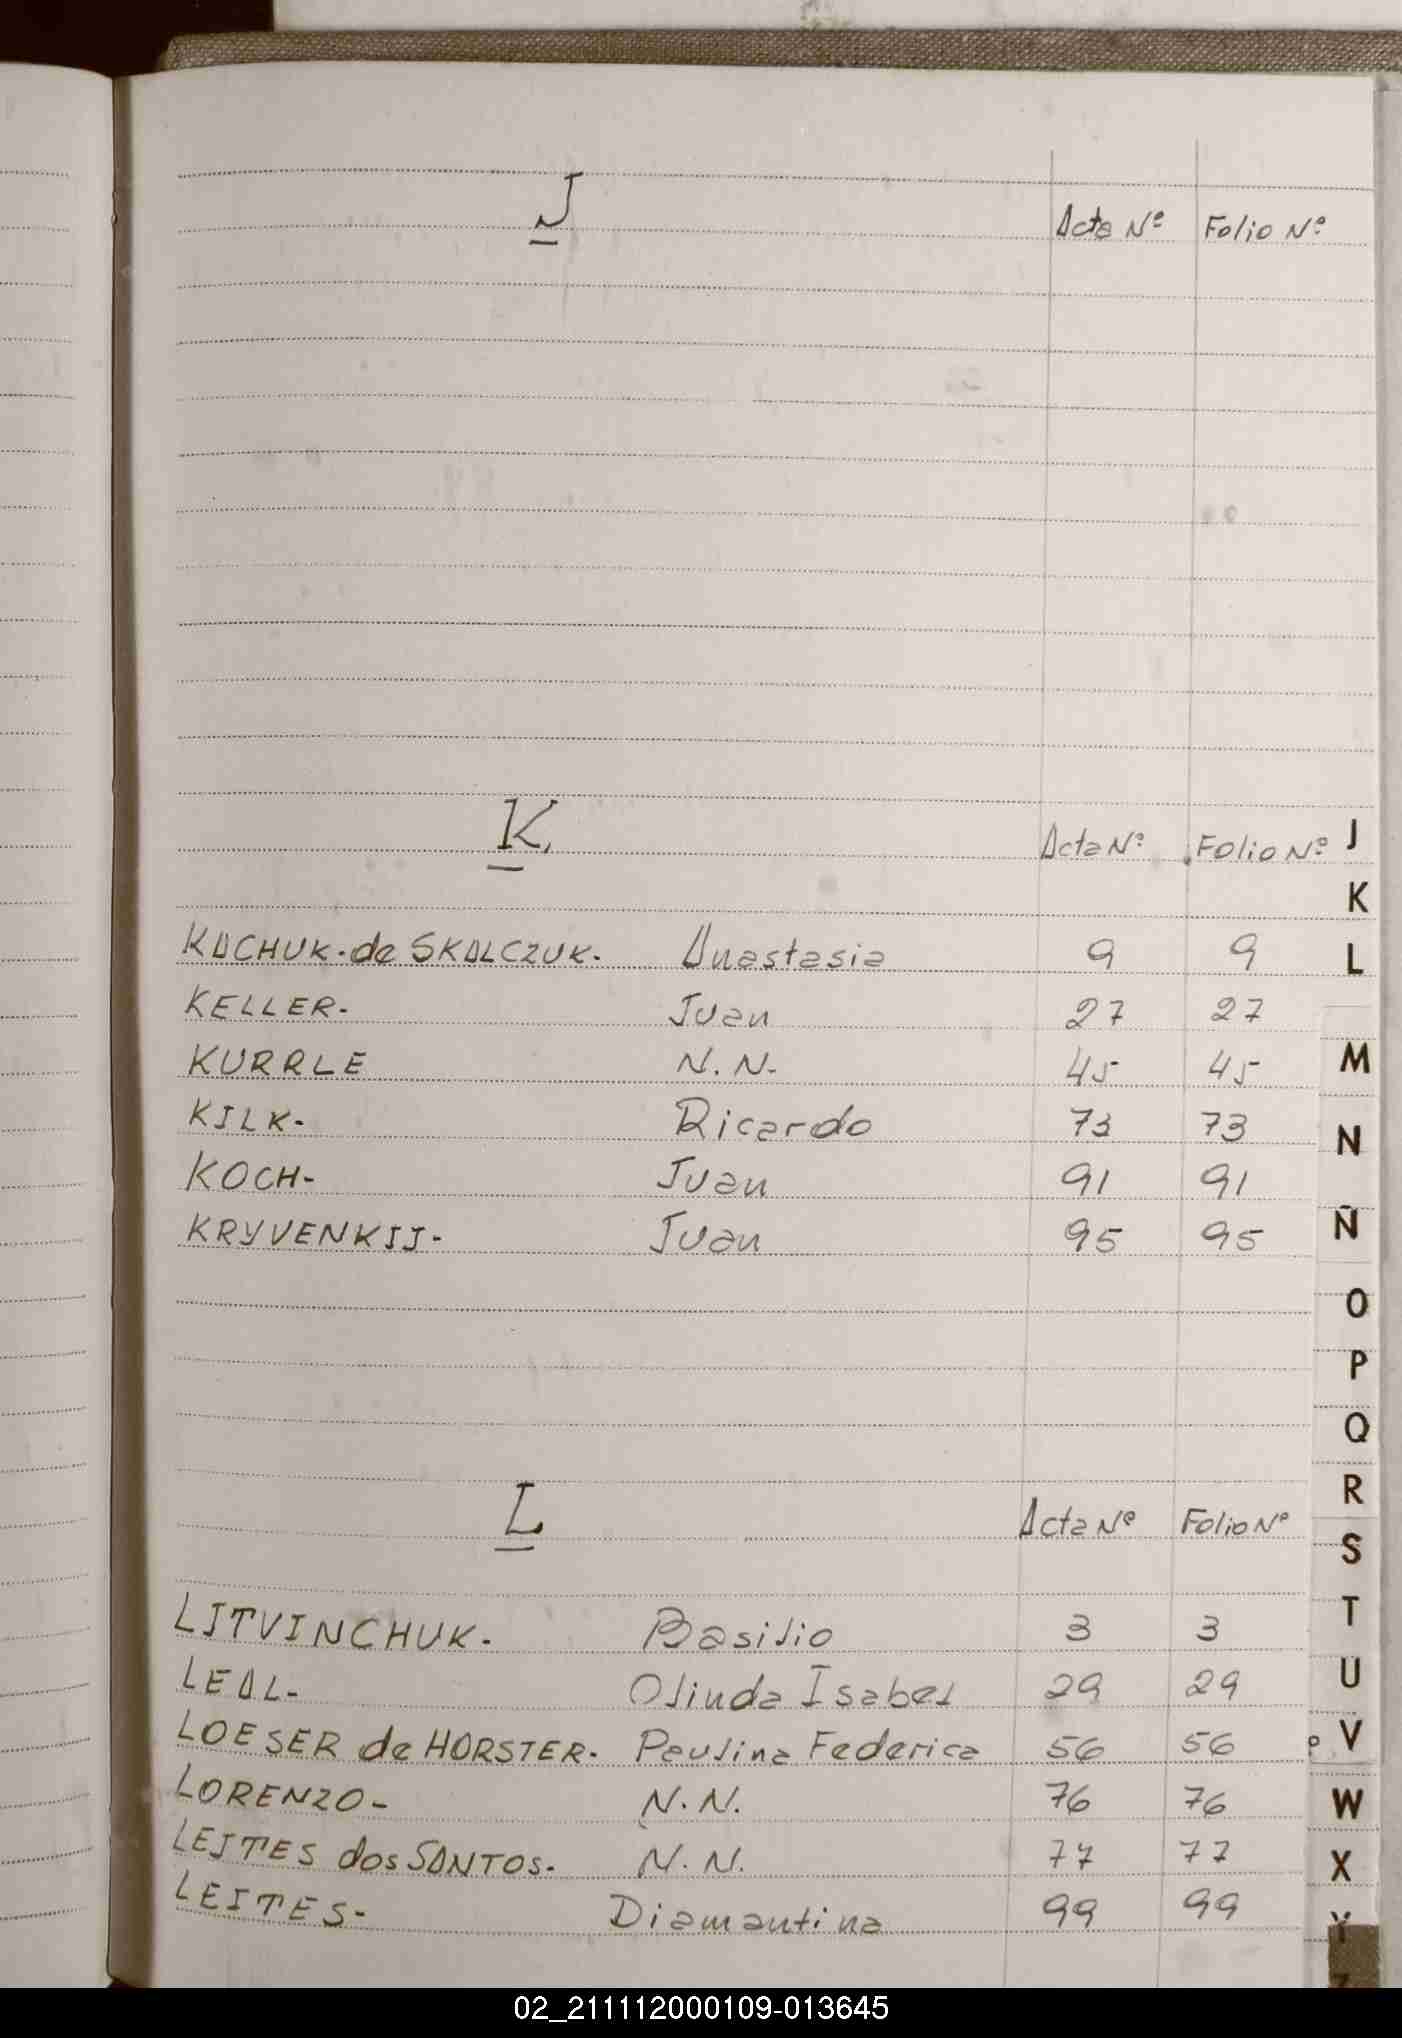 J
Acta Nº Folio Nº
K.
Acta Nº Folio Nº
KACHUK. de SKALCZUK. Anastasia 9 9
KELLER- Juan 27 27
KURRLE N.N- 45 45
KILK- Ricardo 73 73
KOCH- Juan 91 91
KRYVENKIJ- Juan 95 95
L
Acta Nº Folio Nº
LITVINCHUK- Basilio 3 3
LEAL- Olinda Isabel 29 29
LOESER de HORSTER- Paulina Federica 56 56
LORENZO- N.N. 76 76
LEITES dos SANTOS- N.N. 77 77
LEITES- Diamantina 99 99
J
K
L
M
N
Ñ
O
P
Q
R
S
T
U
V
W
X
Y
Z
02_211112000109-013645